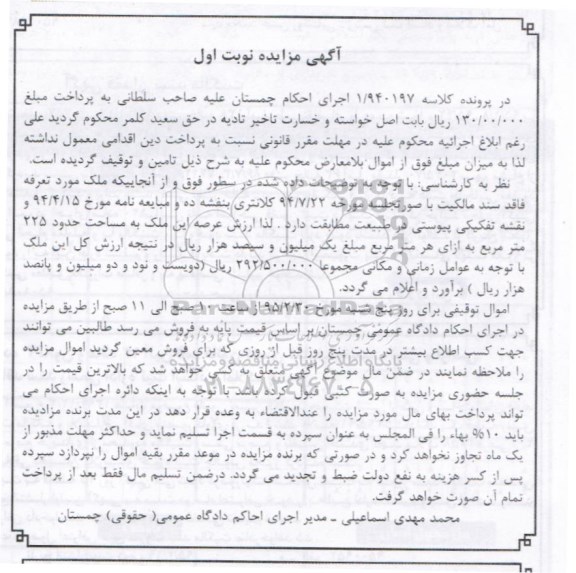 آگهی مزایده نوبت اول
در پرونده کلاسه ۱/۹۴۰۱۹۷ اجرای احکام چمستان علیه صاحب سلطانی به پرداخت مبلغ
۱۳۰/۰۰/۰۰۰ ریال بابت اصل خواسته و خسارت تاخیر تادیه در حق سعید کلمر محکوم گردید علی
رغم ابلاغ اجرائیه محکوم علیه در مهلت مقرر قانونی نسبت به پرداخت دین اقدامی معمول نداشته
لذا به میزان مبلغ فوق از اموال بلامعارض محکوم علیه به شرح ذیل تامین و توقیف گردیده است.
نظر به کارشناسی: با توجه به توضیحات داده شده در سطور فوق و از آنجاییکه ملک مورد تعرفه
فاقد سند مالکیت با صورتجلسه مورخه ۹۴/۷/۲۲ کلانتری بنفشه ده و مبایعه نامه مورخ ۹۴/۴/۱۵ و
نقشه تفکیکی پیوستی در طبیعت مطابقت دارد . لذا ارزش عرصه این ملک به مساحت حدود ۲۲۵
متر مربع به ازای هر متر مربع مبلغ یک میلیون و سیصد هزار ریال در نتیجه ارزش کل این ملک
با توجه به عوامل زمانی و مکانی مجموعا ۲۹۲/۵۰۰/۰۰۰ ریال (دویست و نود و دو میلیون و پانصد
هزار ریال ) برآورد و اعلام می گردد.
اموال توقیفی برای روز پنج شنبه مورخ ۹۵/۲/۳۰ از ساعت ۱۰ صبح الی ۱۱ صبح از طریق مزایده
در اجرای احکام دادگاه عمومی چمستان بر اساس قیمت پایه به فروش می رسد طالبین می توانند
جهت کسب اطلاع بیشتر در مدت پنج روز قبل از روزی که برای فروش معین گردید اموال مزایده
را ملاحظه نمایند در ضمن مال موضوع آگهی متعلق به کسی خواهد شد که بالاترین قیمت را در
جلسه حضوری مزایده به صورت کتبی قبول کرده باشد با توجه به اینکه دائره اجرای احکام می
تواند پرداخت بهای مال مورد مزایده را عندالاقتضاء به وعده قرار دهد در این مدت برنده مزادیده
باید ۱۰% بهاء را فی المجلس به عنوان سپرده به قسمت اجرا تسلیم نماید و حداکثر مهلت مذبور از
یک ماه تجاوز نخواهد کرد و در صورتی که برنده مزایده در موعد مقرر بقیه اموال را نپردازد سپرده
پس از کسر هزینه به نفع دولت ضبط و تجدید می گردد. درضمن تسلیم مال فقط بعد از پرداخت
تمام آن صورت خواهد گرفت.
محمد مهدی اسماعیلی ـ مدیر اجرای احاکم دادگاه عمومی( حقوقی) چمستان